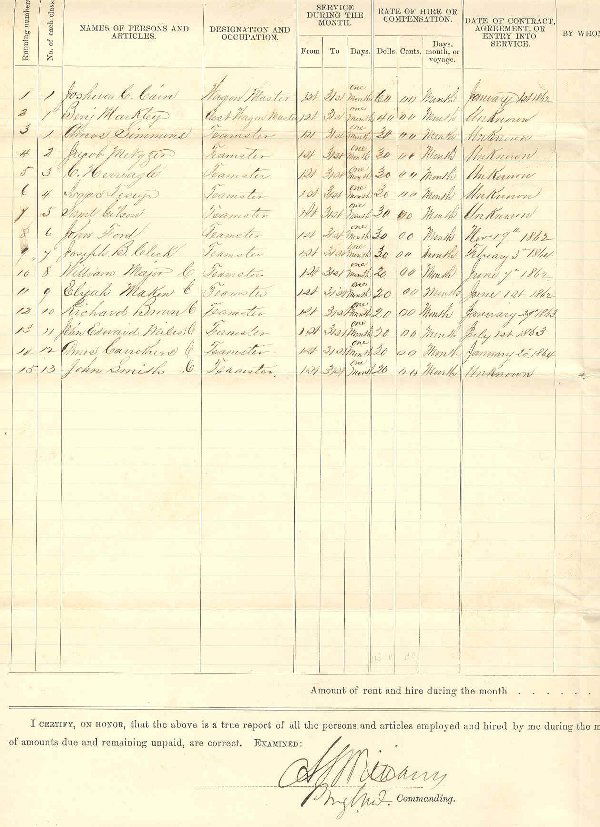 Running number. No. of each class. NAMES OF PERSONS AND ARTICLES. DESIGNATION AND OCCUPATION. SERVICE DURING THE MONTH. From To Days. RATE OF HIRE OR COMPENSATION. Dolls. Cents. Days, month, or voyage. DATE OF CONTRACT, AGREEMENT, OR ENTRY INTO SERVICE. BY WHOM
1 1 Joshua C. Cain Wagon Master 1st 31st one Month 60 00 Month January 1st 1862
2 1 Benj Mackley Asst Wagon Master 1st 31st one Month 40 00 Month Unknown
3 1 Simmins Teamster 1st 31st one Month 30 00 Month Unknown
4 2 Jacob Metzger Teamster 1st 31st one Month 30 00 Month Unknown
5 3 C. Teamster 1st 31st one Month 30 00 Month Unknown
6 4 Teamster 1st 31st one Month 30 00 Month Unknown
7 5 Teamster 1st 31st one Month 30 00 Month Unknown
8 6 John Ford Teamster 1st 31st one Month 30 00 Month Nov 19th 1862
9 7 Joseph B. Click Teamster 1st 31st one Month 30 00 Month 1864
10 8 William Major C Teamster 1st 31st one Month 20 00 Month June 1862
11 9 Elijah Makin C Teamster 1st 31st one Month 20 00 Month June 1st 1862
12 10 Richard Brown C Teamster 1st 31st one Month 20 00 Month January 1863
13 11 Edward C Teamster 1st 31st one Month 20 00 Month July 1st 1863
14 12 C Teamster 1st 31st one Month 20 00 Month January 1864
15 13 John Smith C Teamster 1st 31st one Month 20 00 Month Unknown
Amount of rent and hire during the month
I CERTIFY, ON HONOR, that the above is a true report of all the persons and articles employed and hired by me during the m
of amounts due and remaining unpaid, are correct. EXAMINED:
Commanding.